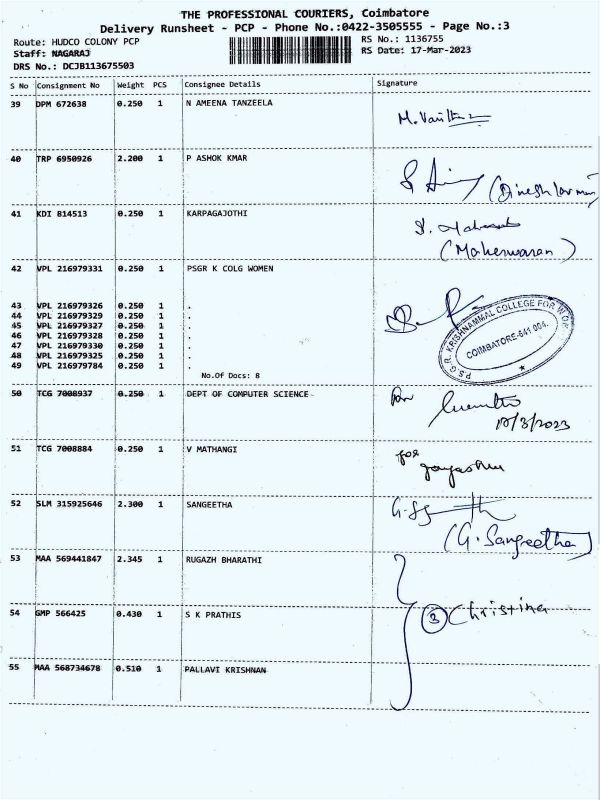 THE PROFESSIONAL COURIERS, Coimbatore
Delivery Runsheet - PCP - Phone No.:0422-3505555 - Page No.:3
Route: HUDCO COLONY PCP RS No.: 1136755
Staff: NAGARAJ RS Date: 17-Mar-2023
DRS No.: DCJB113675503
S No Consignment No Weight PCS Consignee Details Signature
39 DPM 672638 0.250 1 N AMEENA TANZEELA
40 TRP 6950926 2.200 1 P ASHOK KMAR
41 KDI 814513 0.250 1 KARPAGAJOTHI
(Maheswaran)
42 VPL 216979331 0.250 1 PSGR K COLG WOMEN
43 VPL 216979326 0.250 1 .
44 VPL 216979329 0.250 1 .
45 VPL 216979327 0.250 1 .
46 VPL 216979328 0.250 1 .
47 VPL 216979330 0.250 1 .
48 VPL 216979325 0.250 1 .
49 VPL 216979784 0.250 1 .
No.Of Docs: 8
P.S.G.R. KRISHNAMMAL COLLEGE FOR WOM
COIMBATORE-641 004.
50 TCG 7008937 0.250 1 DEPT OF COMPUTER SCIENCE
for
17/3/2023
51 TCG 7008884 0.250 1 V MATHANGI
for
52 SLM 315925646 2.300 1 SANGEETHA
(G. Sangeetha)
53 MAA 569441847 2.345 1 RUGAZH BHARATHI
54 GMP 566425 0.430 1 S K PRATHIS
3 Christina
55 MAA 568734678 0.510 1 PALLAVI KRISHNAN